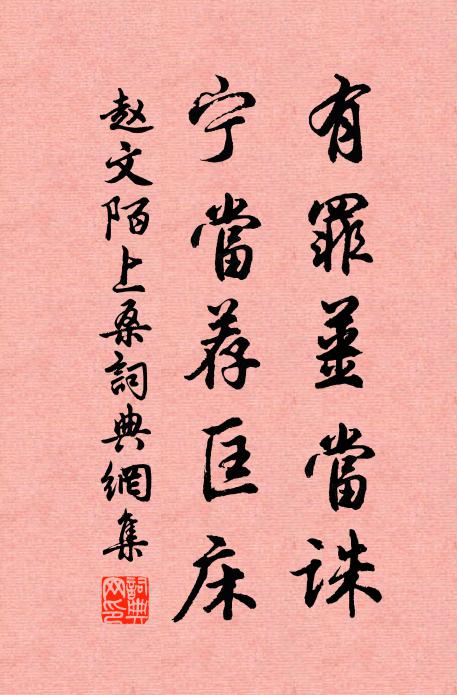 有罪薑當誅
宁當荐匡床
赵文陌上桑詞典網集
詞典网印